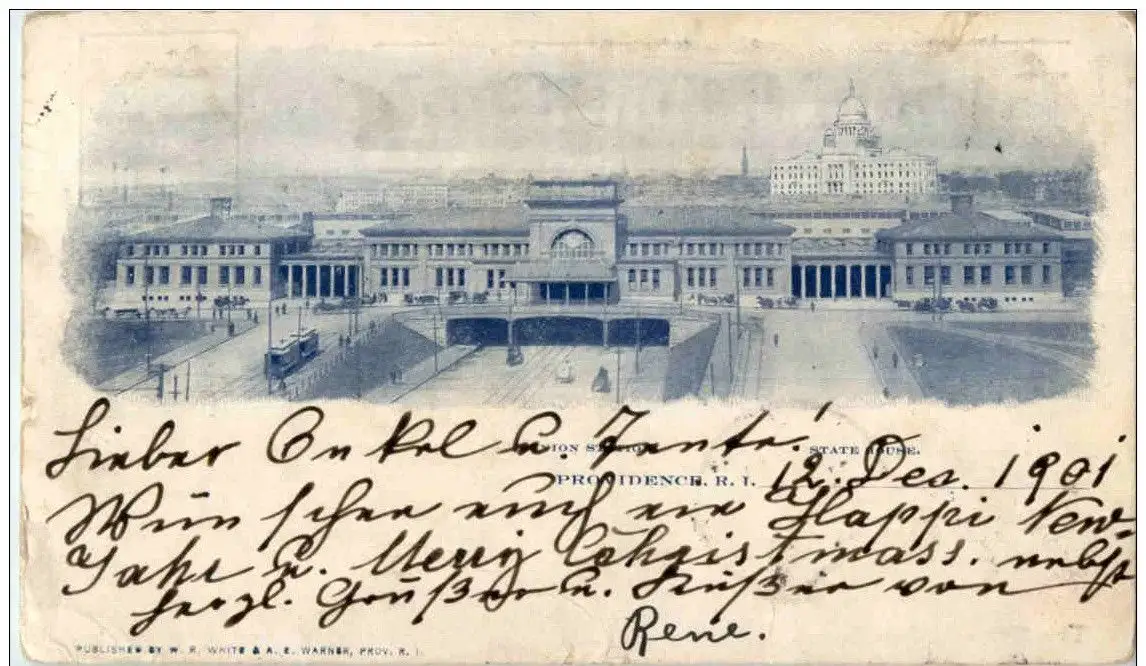 Lieber Onkel u. Tante!
UNION STATION. STATE HOUSE.
PROVIDENCE, R. I. 12. Dec. 1901
Wünschen euch ein Happi New-
Jahr u. Merry Christmass. nebst
herzl. Grüßen u. Küßen von
Rene.
PUBLISHED BY W. R. WHITE & A. E. WARNER, PROV. R. I.